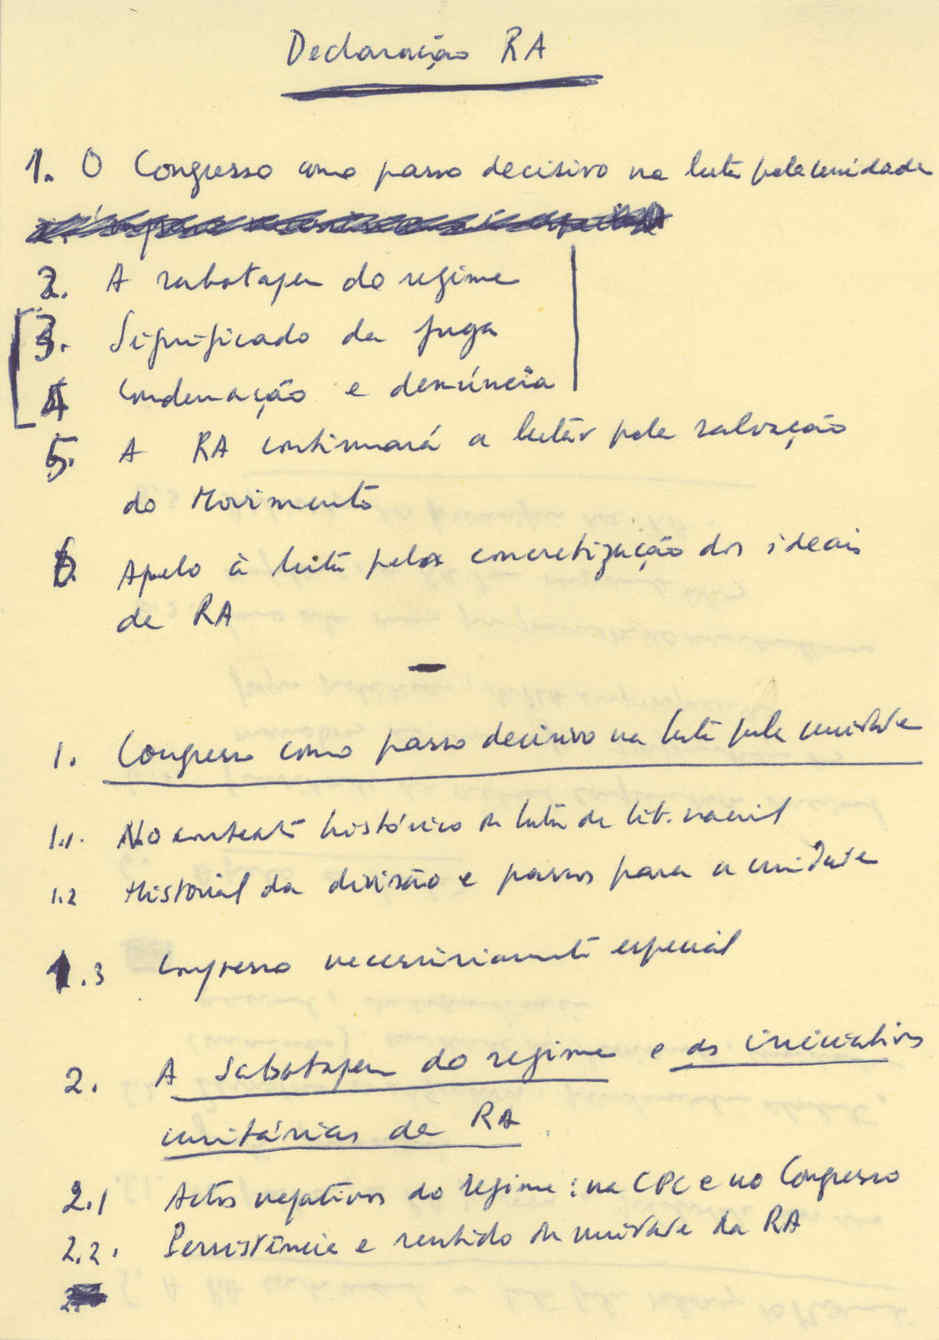 Declaração RA
1. O Congresso como passo decisivo na luta pela unidade
2. A sabotagem do regime
3. Significado da fuga
4 Condenação e denúncia
5. A RA continuará a lutar pela salvação
do Movimento
6. Apelo à luta pela concretização dos ideais
de RA
1. Congresso como passo decisivo na luta pela unidade
1.1. No contexto histórico da luta de lib. nacional
1.2 Historial da divisão e passos para a unidade
1.3 Congresso necessariamente especial
2. A Sabotagem do regime e as iniciativas
unitárias da RA
2.1 Actos negativos do regime: na CPC e no Congresso
2.2. Persistência e sentido de unidade da RA